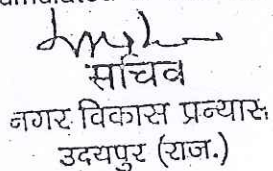 सचिव
नगर विकास प्रन्यास,
उदयपुर (राज.)